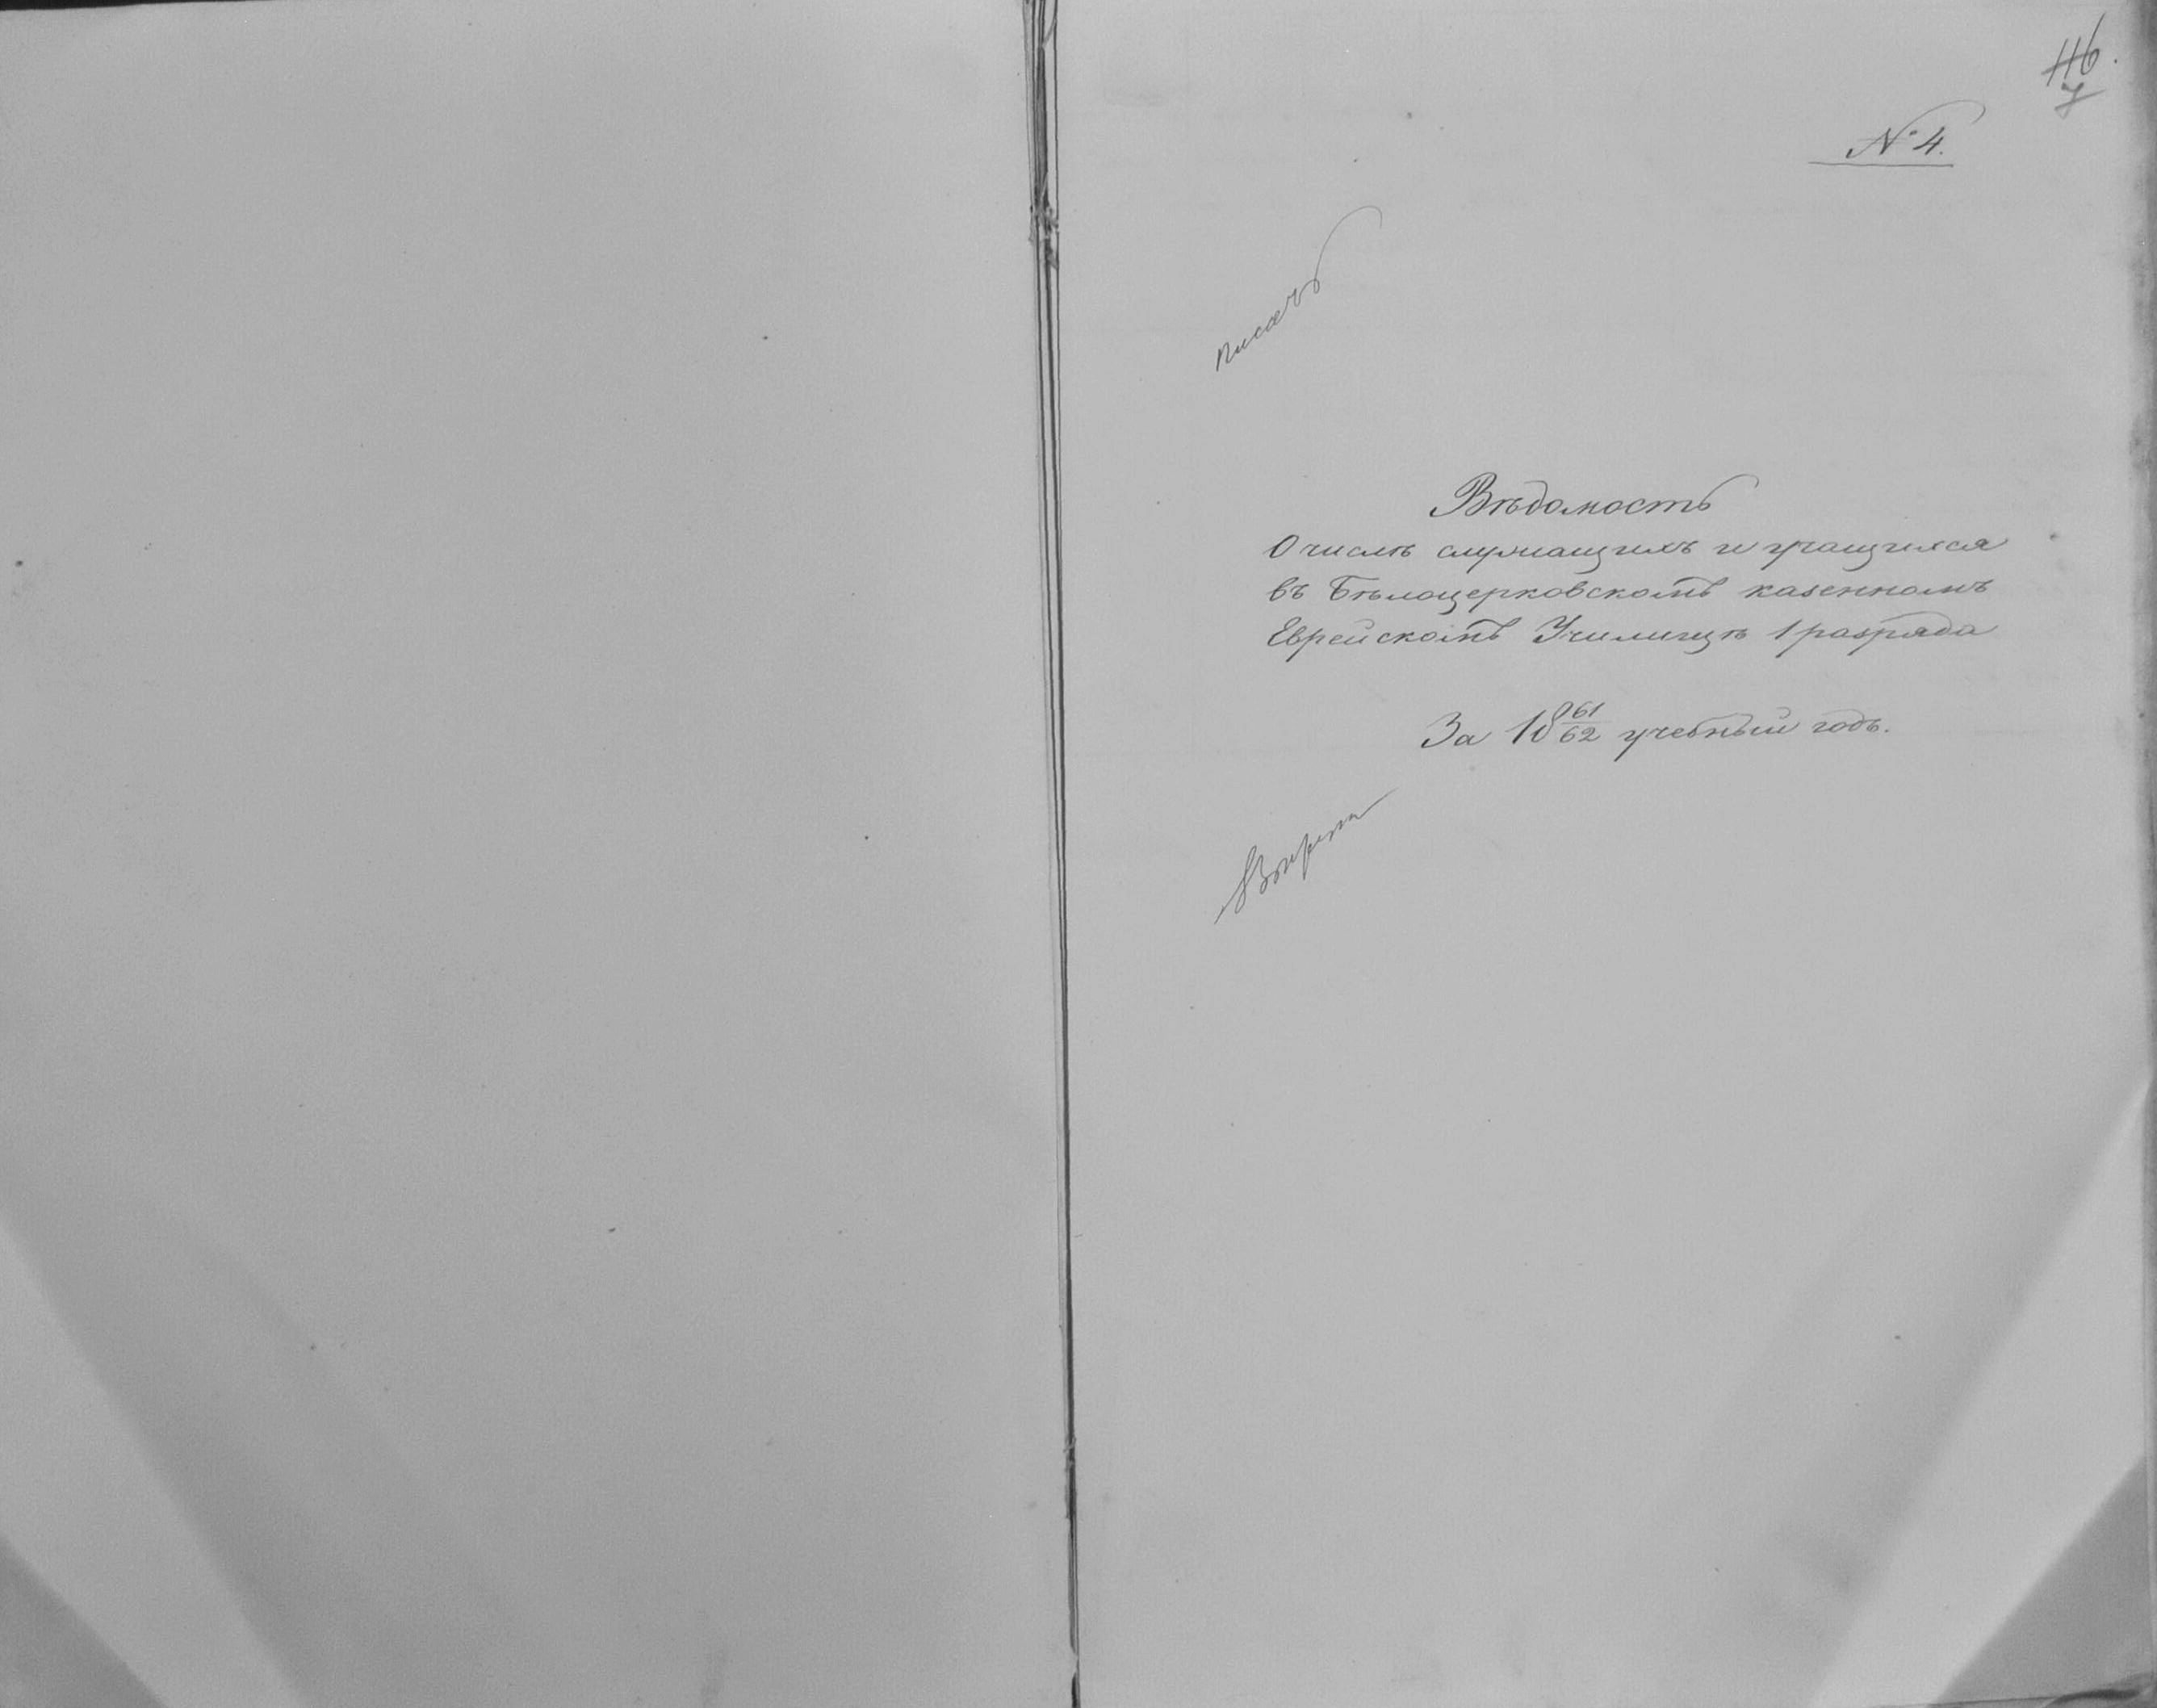 116.
7
№ 4.
писать
Вѣдомость
О числѣ служащихъ и учащихся
въ Бѣлоцерковскомъ казенномъ
Еврейскомъ Училищѣ 1 разряда
За 18 61/62 учебный годъ.